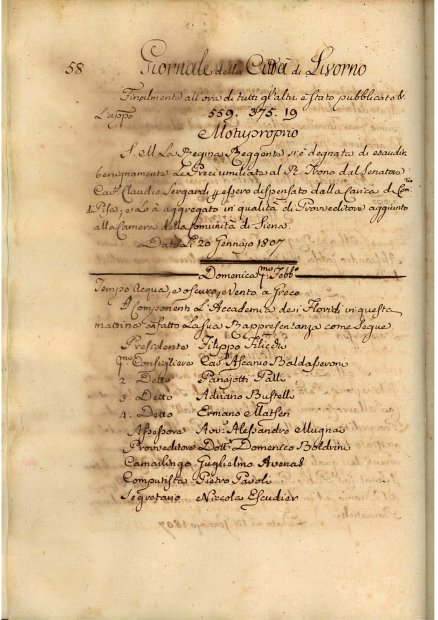 58 Giornale della Città di Livorno
Finalmente all'ora di tutti gl'altri è stato pubblicato
559. 375. 19
Motuproprio
S. M. La Regina Reggente si è degnata di esaudir
benignamente Le Preci umiliate al R. Trono dal Senatore
Cav. Claudio Sergardi essere dispensato dalla Carica di
di Pisa; e Lo à aggregato in qualità di Provveditore aggiunto
alla Camera della Comunità di Siena.
Dato Li 20 Gennajo 1807
Domenica p.mo Febb.
Tempo Acqua, e oscuro, e Vento a Greco
I Componenti L'Accademia de in questa
mattina an fatto La sua Rappresentanza come segue
Presidente Filippo Filicchi
p.mo Consigliere Cav. Ascanio Baldasseroni
2. Detto Panajotti Palli
3. Detto Adriano Bustelli
4. Detto Ermano Matsen
Assessore Avv. Alessandro Mugnai
Provveditore Dott. Domenico Boldrini
Camarlingo Guglielmo Avenas
Computista Pietro Paroli
Segretario Niccola Escudier